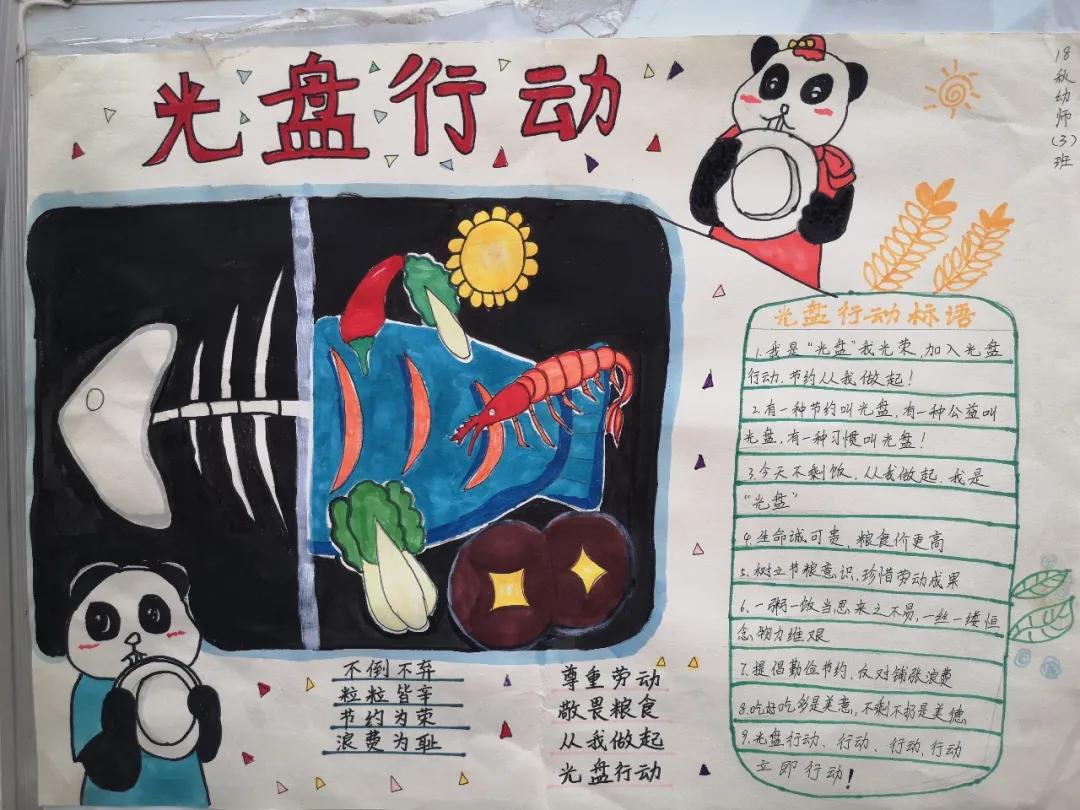 光盘行动
18秋幼师(3)班
光盘行动标语
1.我是“光盘”我光荣,加入光盘
行动.节约从我做起!
2.有一种节约叫光盘,有一种公益叫
光盘,有一种习惯叫光盘!
3.今天不剩饭,从我做起.我是
“光盘”
4.生命诚可贵,粮食价更高
5.树立节粮意识,珍惜劳动成果
6.一粥一饭当思来之不易,一丝一缕恒
念物力维艰
7.提倡勤俭节约,反对铺张浪费
8.吃好吃多是美意,不剩不扔是美德
9.光盘行动、行动、行动,行动
立即行动!
不倒不弃
粒粒皆辛
节约为荣
浪费为耻
尊重劳动
敬畏粮食
从我做起
光盘行动